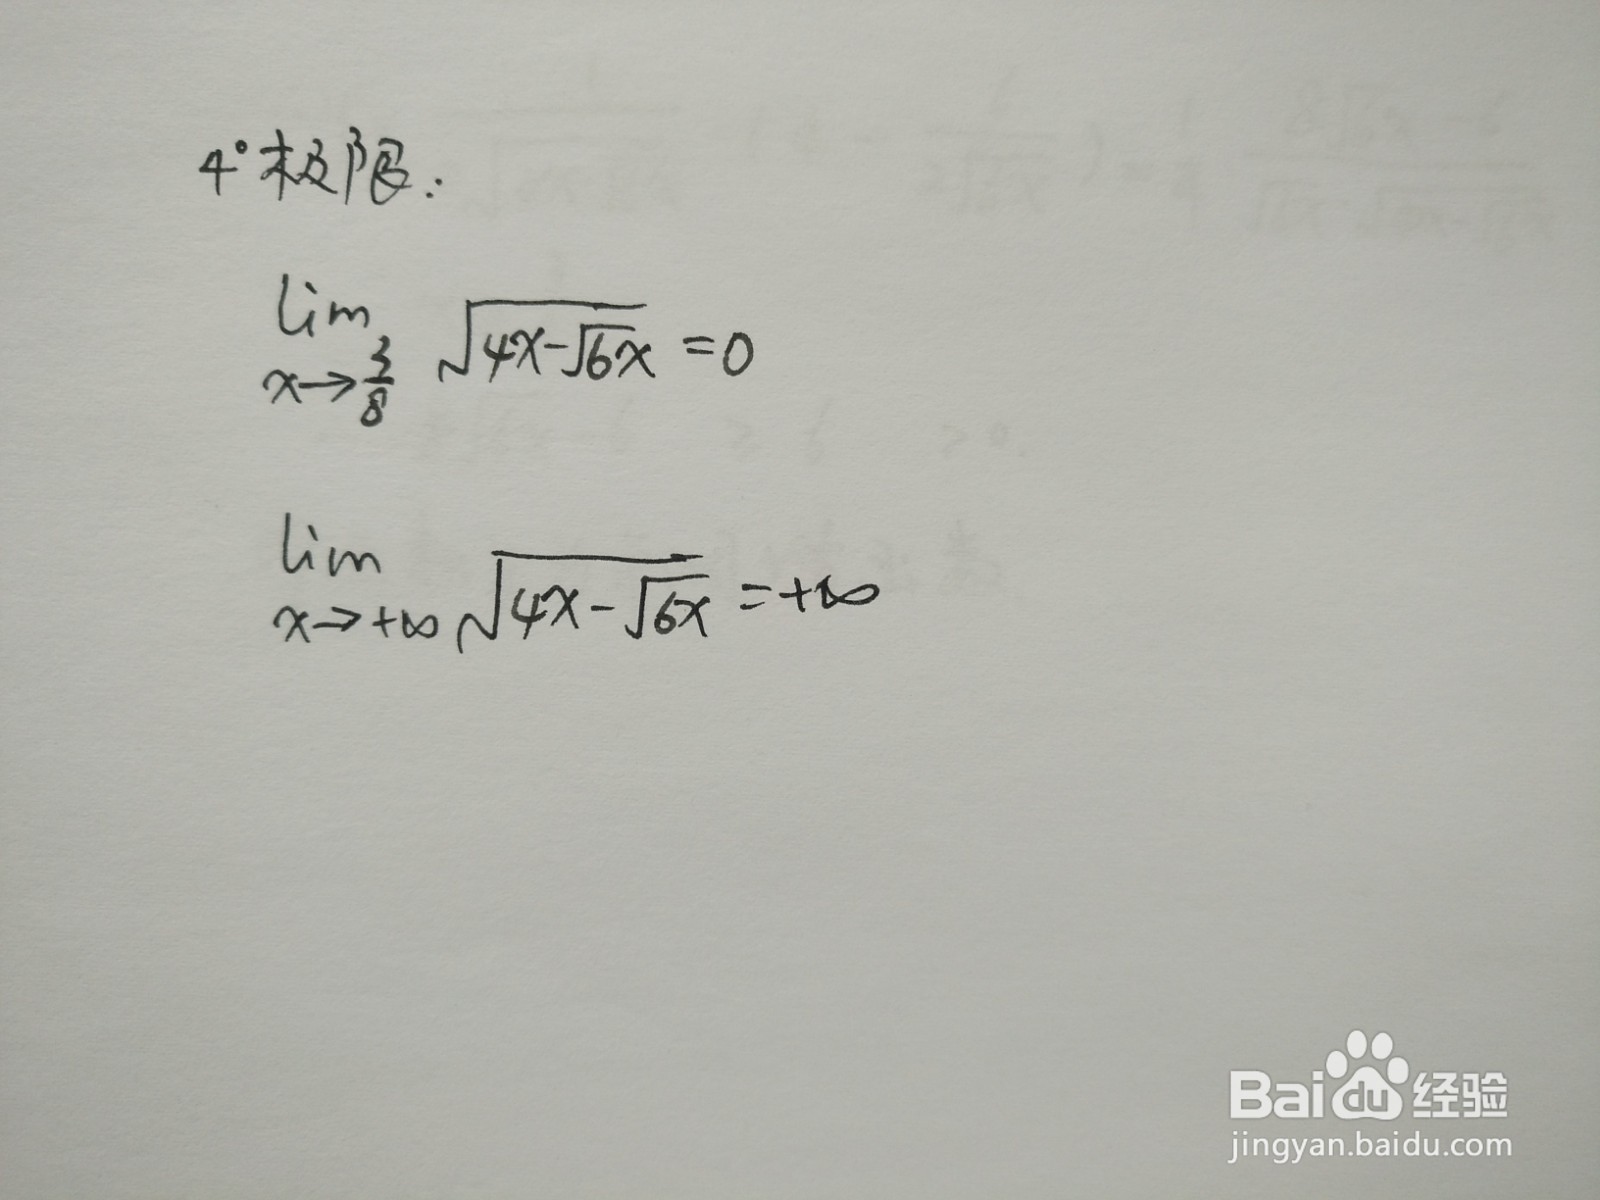 4°极限:
lim x→3/8 √(4x-√6x) =0
lim x→+∞ √(4x-√6x) =+∞
Baidu经验
jingyan.baidu.com